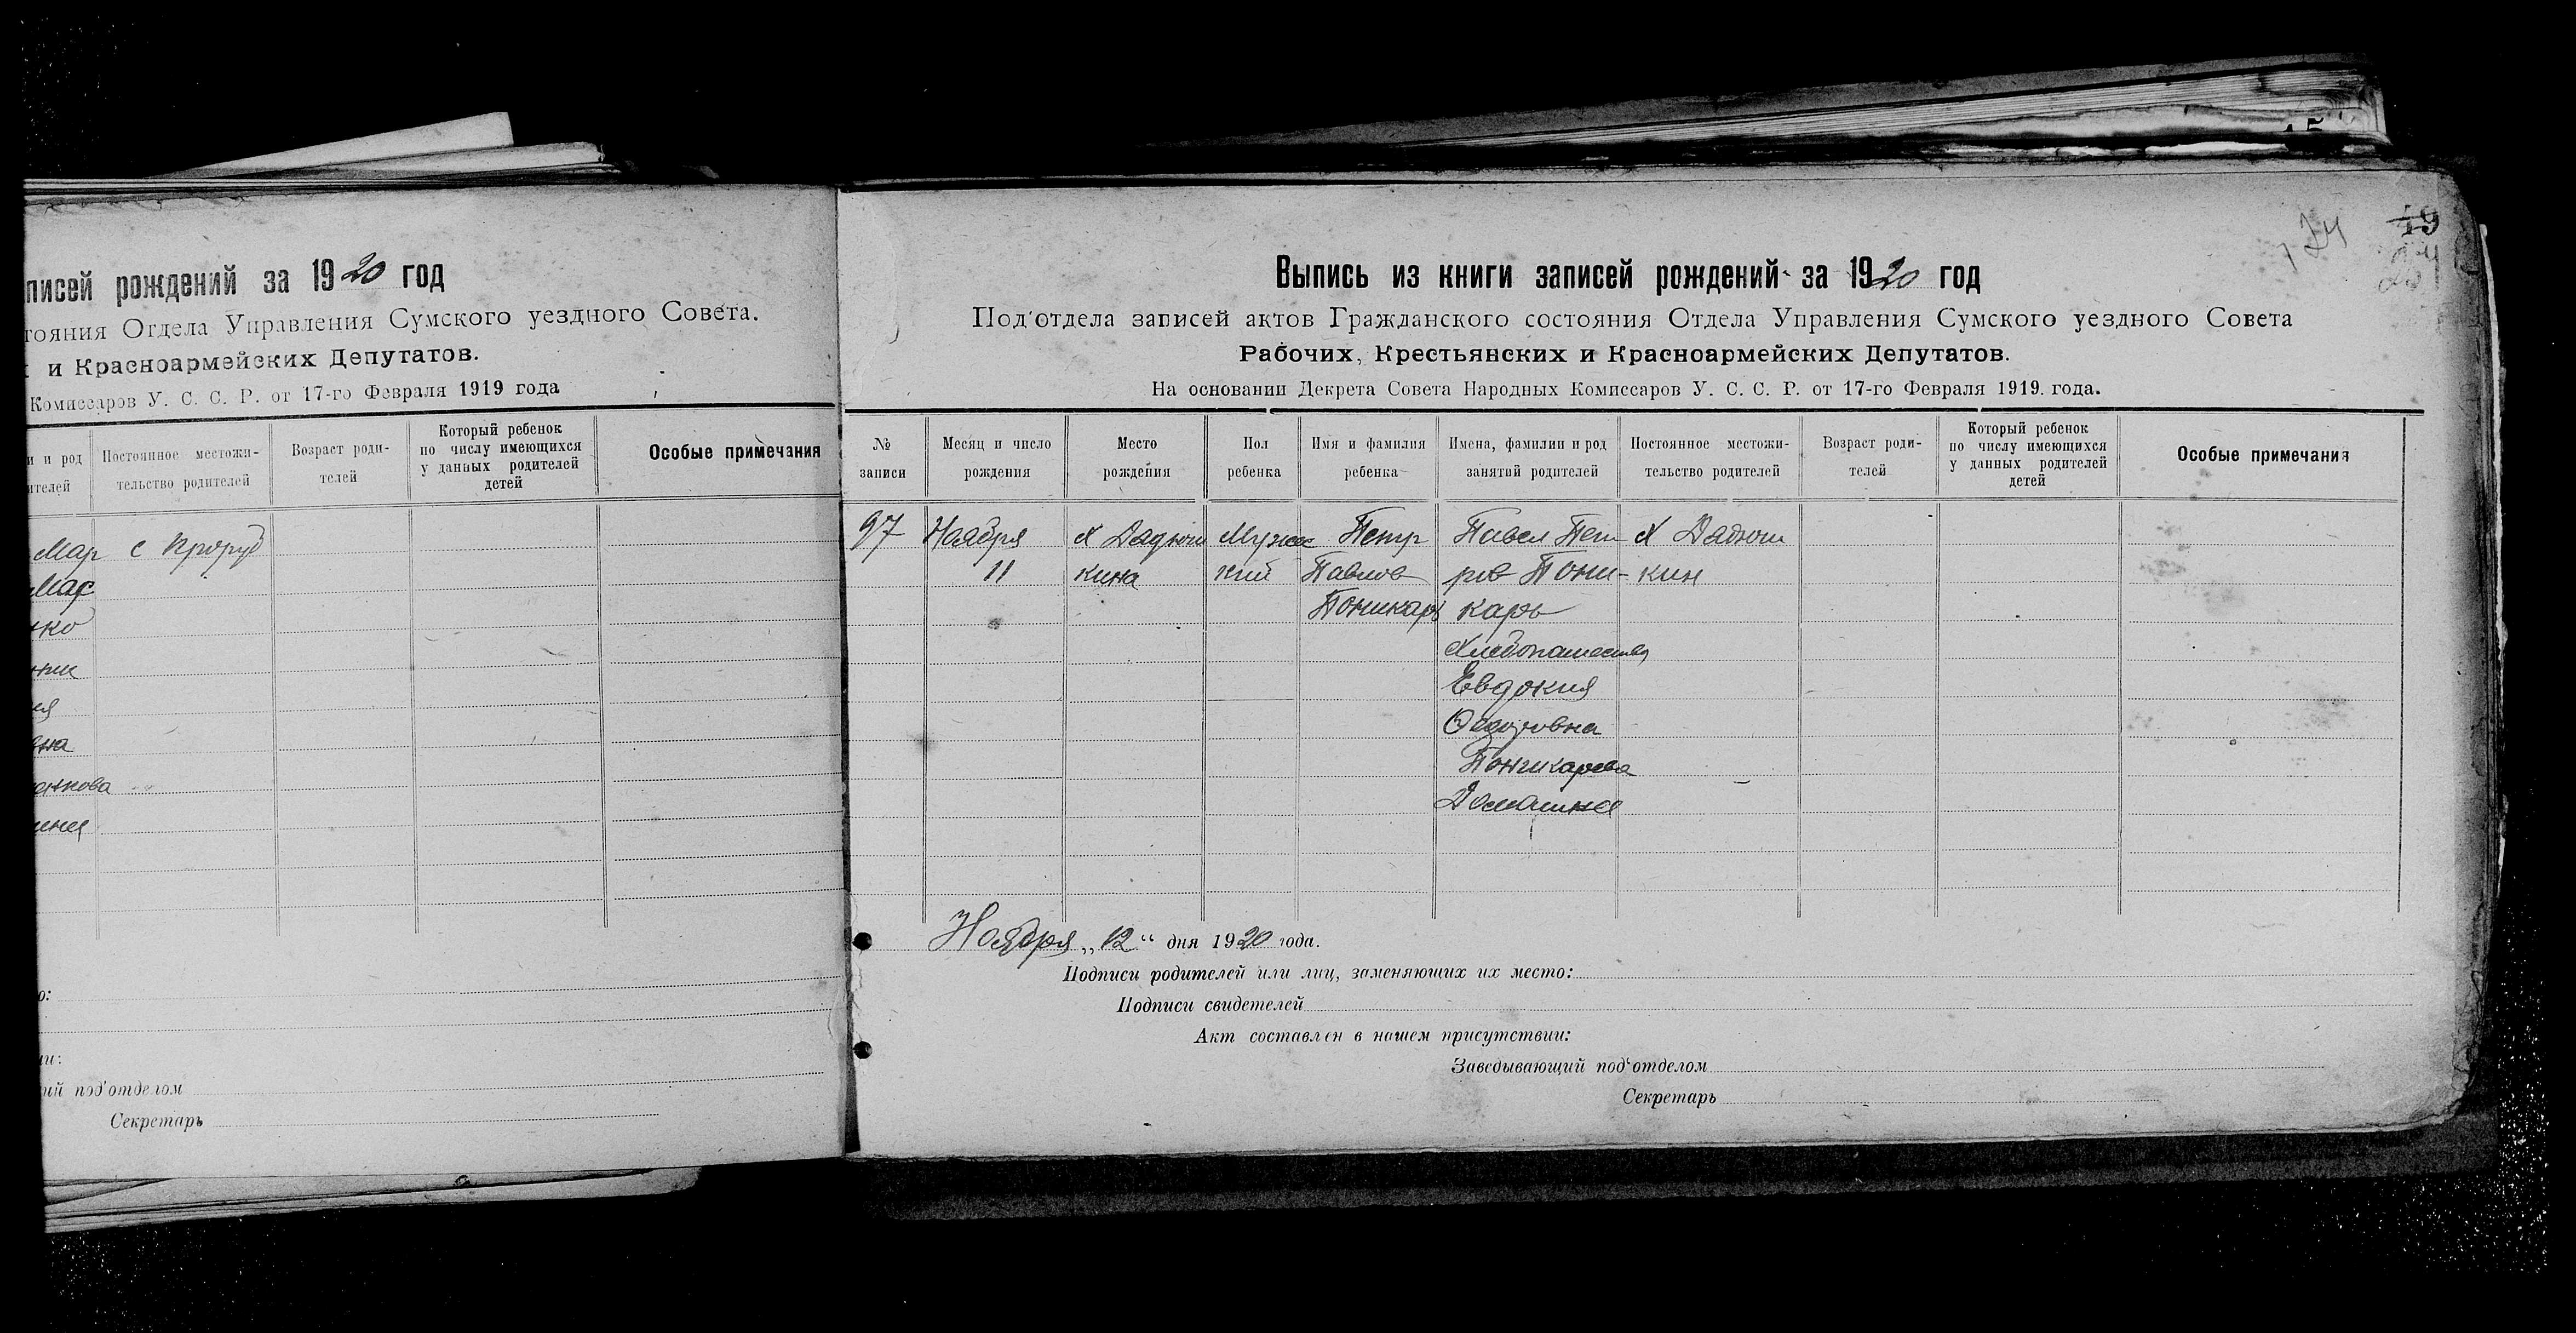 писей рождений за 1920 год
тояния Отдела Управления Сумского уездного Совета.
и Красноармейских Депутатов.
Комиссаров У. С. С. Р. от 17-го Февраля 1919 года
и и род
ителей
Постоянное местожи-
тельство родителей
Возраст роди-
телей
Который ребенок
по числу имеющихся
у данных родителей
детей
Особые примечания
Мар с Прoруб
Мар
нко
вна
ий под'отделом
Секретарь
49
24
174
Выпись из книги записей рождений за 1920 год
Под'отдела записей актов Гражданского состояния Отдела Управления Сумского уездного Совета
Рабочих, Крестьянских и Красноармейских Депутатов.
На основании Декрета Совета Народных Комиссаров У. С. С. Р. от 17-го Февраля 1919. года.
№
записи
Месяц и число
рождения
Место
рождения
Пол
ребенка
Имя и фамилия
ребенка
Имена, фамилии и род
занятий родителей
Постоянное местожи-
тельство родителей
Возраст роди-
телей
Который ребенок
по числу имеющихся
у данных родителей
детей
Особые примечания
97 Ноября Х Дадюш Мужес Петр Павел Пет Х Дадюш
11 кина кий Павлов ров Пони- кин
Поникарь карь
Хлебопашество
Евдокия
Федоровна
Поникарева
Домашняя
Ноября „12“ дня 1920 года.
Подписи родителей или лиц, заменяющих их место:
Подписи свидетелей
Акт составлен в нашем присутствии:
Заведывающий под'отделом
Секретарь